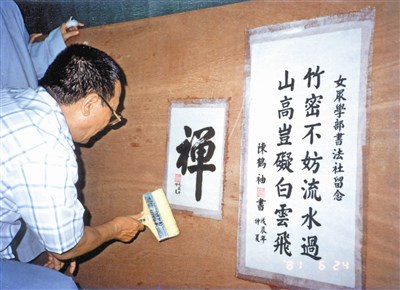 女眾學部書法社留念
竹密不妨流水過
山高豈礙白雲飛
陳鶴袖書
戊辰年
仲夏
禪
81 6 24